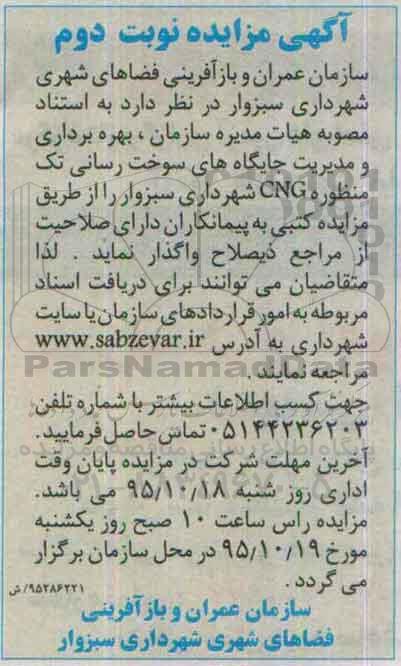 آگهی مزایده نوبت دوم
سازمان عمران و بازآفرینی فضاهای شهری
شهرداری سبزوار در نظر دارد به استناد
مصوبه هیات مدیره سازمان ، بهره برداری
و مدیریت جایگاه های سوخت رسانی تک
منظوره CNG شهرداری سبزوار را از طریق
مزایده کتبی به پیمانکاران دارای صلاحیت
از مراجع ذیصلاح واگذار نماید . لذا
متقاضیان می توانند برای دریافت اسناد
مربوطه به امور قراردادهای سازمان یا سایت
شهرداری به آدرس www.sabzevar.ir
ParsNamadData
مراجعه نمایند .
جهت کسب اطلاعات بیشتر با شماره تلفن
۰۵۱۴۴۲۳۶۲۰۳ تماس حاصل فرمایید.
آخرین مهلت شرکت در مزایده پایان وقت
اداری روز شنبه ۹۵/۱۰/۱۸ می باشد.
مزایده راس ساعت ۱۰ صبح روز یکشنبه
مورخ ۹۵/۱۰/۱۹ در محل سازمان برگزار
می گردد .
۹۵۲۸۶۲۲۱/ش
سازمان عمران و بازآفرینی
فضاهای شهری شهرداری سبزوار